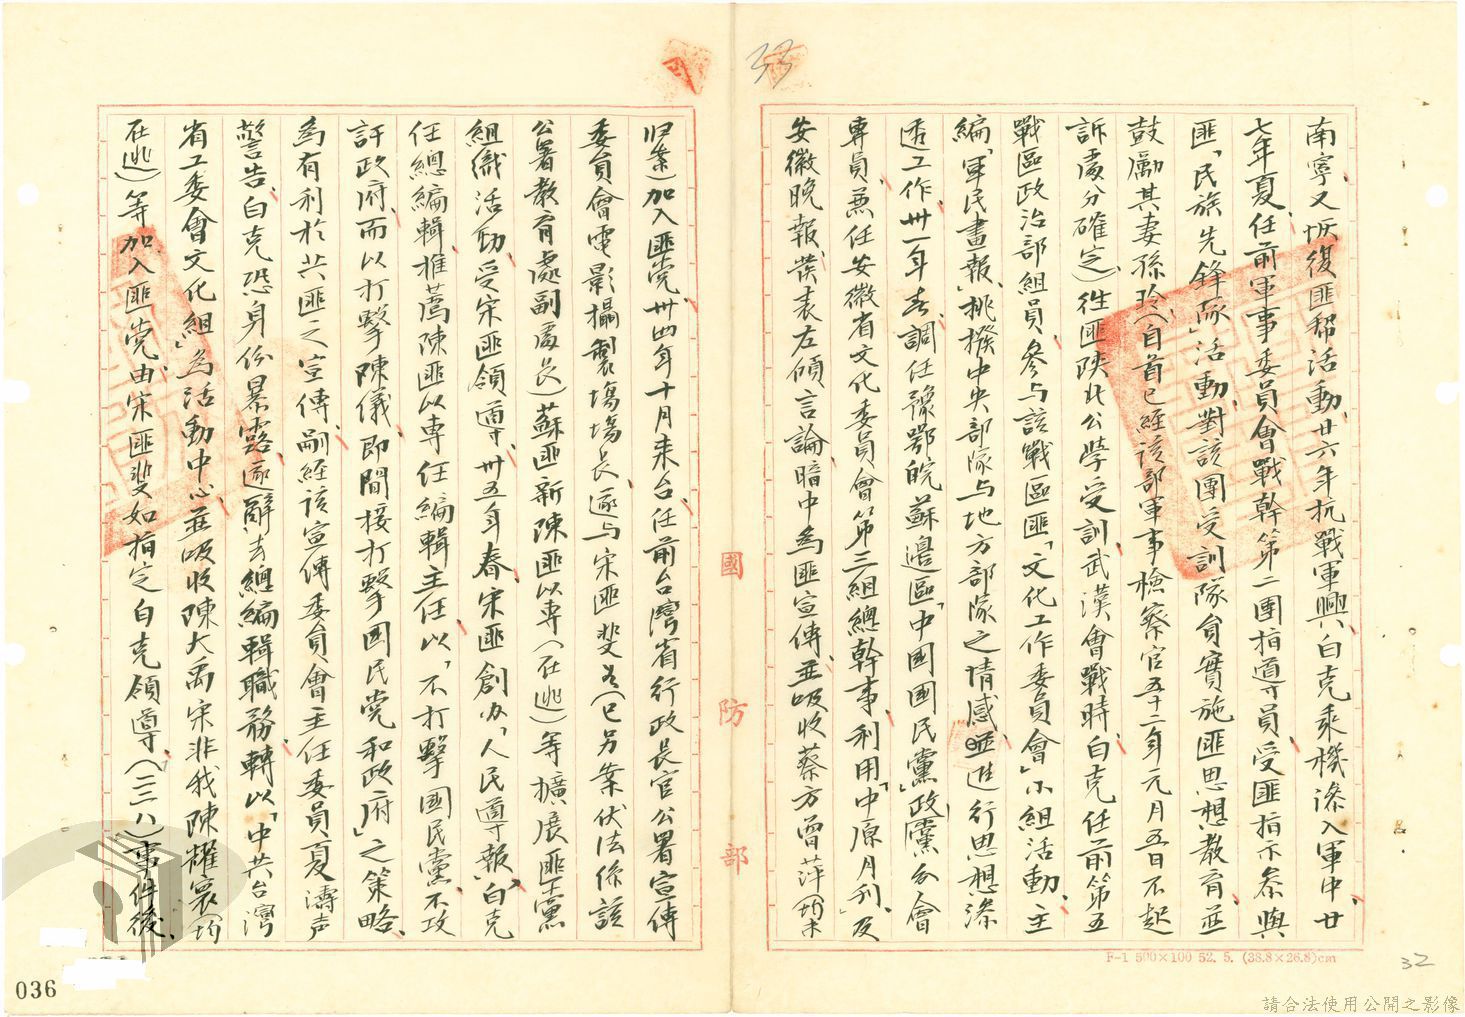 33
南寧又恢復匪幫活動、廿六年抗戰軍興、白克乘機滲入軍中、廿
七年夏、任前軍事委員會戰幹第二團指導員、受匪指示參與
匪「民族先鋒隊」活動、對該團受訓隊員實施匪思想教育、並
鼓勵其妻孫玲(自首已經該部軍事檢察官五十二年元月五日不起
訴處分確定)往匪陝北公學受訓、武漢會戰時、白克任前第五
戰區政治部組員、參与該戰區匪「文化工作委員會」小組活動、主
編「軍民畫報」、挑撥中央部隊与地方部隊之情感、並進行思想滲
透工作、卅一年春、調任豫鄂皖蘇邊區「中國國民黨」政黨分會
專員、兼任安徽省文化委員會第三組總幹事、利用「中原月刊」及
安徽晚報、發表左傾言論、暗中為匪宣傳、並吸收蔡方曾萍(均未
归案)加入匪党、卅四年十月来台、任前台灣省行政長官公署宣傳
委員會電影攝製場場長、遂与宋匪斐如(已另案伏法係該
公署教育處副處長)蘇匪新陳匪以專(在逃)等擴展匪黨
組織活動、受宋匪領導、卅五年春宋匪創办「人民導報」、白克
任總編輯、推薦陳匪以專任編輯主任、以「不打擊國民黨不攻
訐政府、而以打擊陳儀、即間接打擊國民党和政府」之策略、
為有利於共匪之宣傳、嗣經該宣傳委員會主任委員夏濤声
警告、白克恐身份暴露、遂辭去總編輯職務、轉以「中共台灣
省工委會文化組」為活動中心、並吸收陳大禹宋非我陳耀寰(均
在逃)等加入匪党、由宋匪斐如指定白克領導、(三二八)事件後、
國防部
F-1 500×100 52. 5. (38.8×26.8)cm
32
036
請合法使用公開之影像